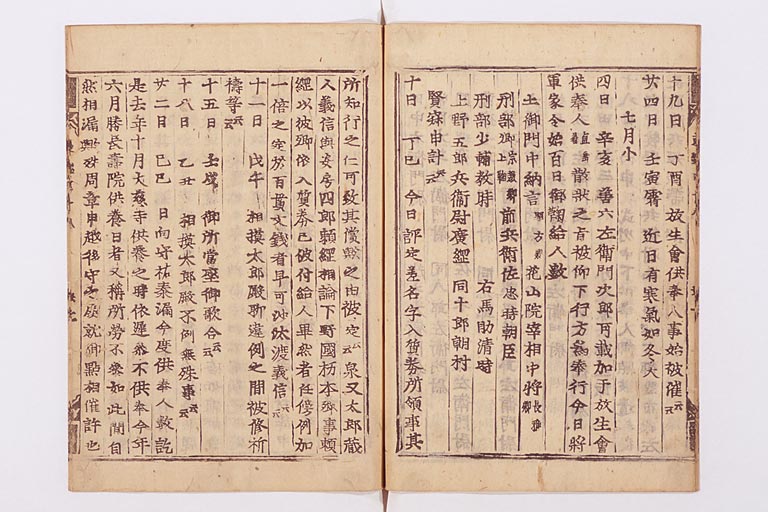 十九日 丁酉 放生會供奉人事始被催云云
廿四日 壬寅霽 近日有寒氣如冬天
七月小
四日 辛亥 善六左衛門次郎可載加于放生會
供奉人直垂散狀之旨被仰下行方爲奉行今日將
軍家令始百日御鞠給人數
土御門中納言顯方卿 花山院宰相中將長雅卿
刑部卿宗敎卿上鞠 前兵衛佐忠時朝臣
刑部少輔敎時 右馬助清時
上野五郎兵衛尉廣經 同十郎朝村
賢寂申計云云
十日 丁巳 今日評定差名字入質券所領事其
所知行之仁可致其償歟之由被定云云泉又太郎藏
人義信與安房四郎頼經相論下野國栃本鄉事頼
經以彼鄉依入質券已被付給人畢然者任傍例加
一倍之定於百貫文錢者早可沙汰渡義信云云
十一日 戊午 相摸太郎殿聊違例之間被修祈
禱等云云
十五日 壬戌 御所當座御歌合云云
十八日 乙丑 相摸太郎殿不例無殊事云云
廿二日 己巳 日向守祐泰漏今度供奉人數訖
是去年十月大慈寺供養之時依遲參不供奉今年
六月勝長壽院供養日者又稱所勞不參如此間自
然相漏歟政周章申越後守之處就御點相催許也